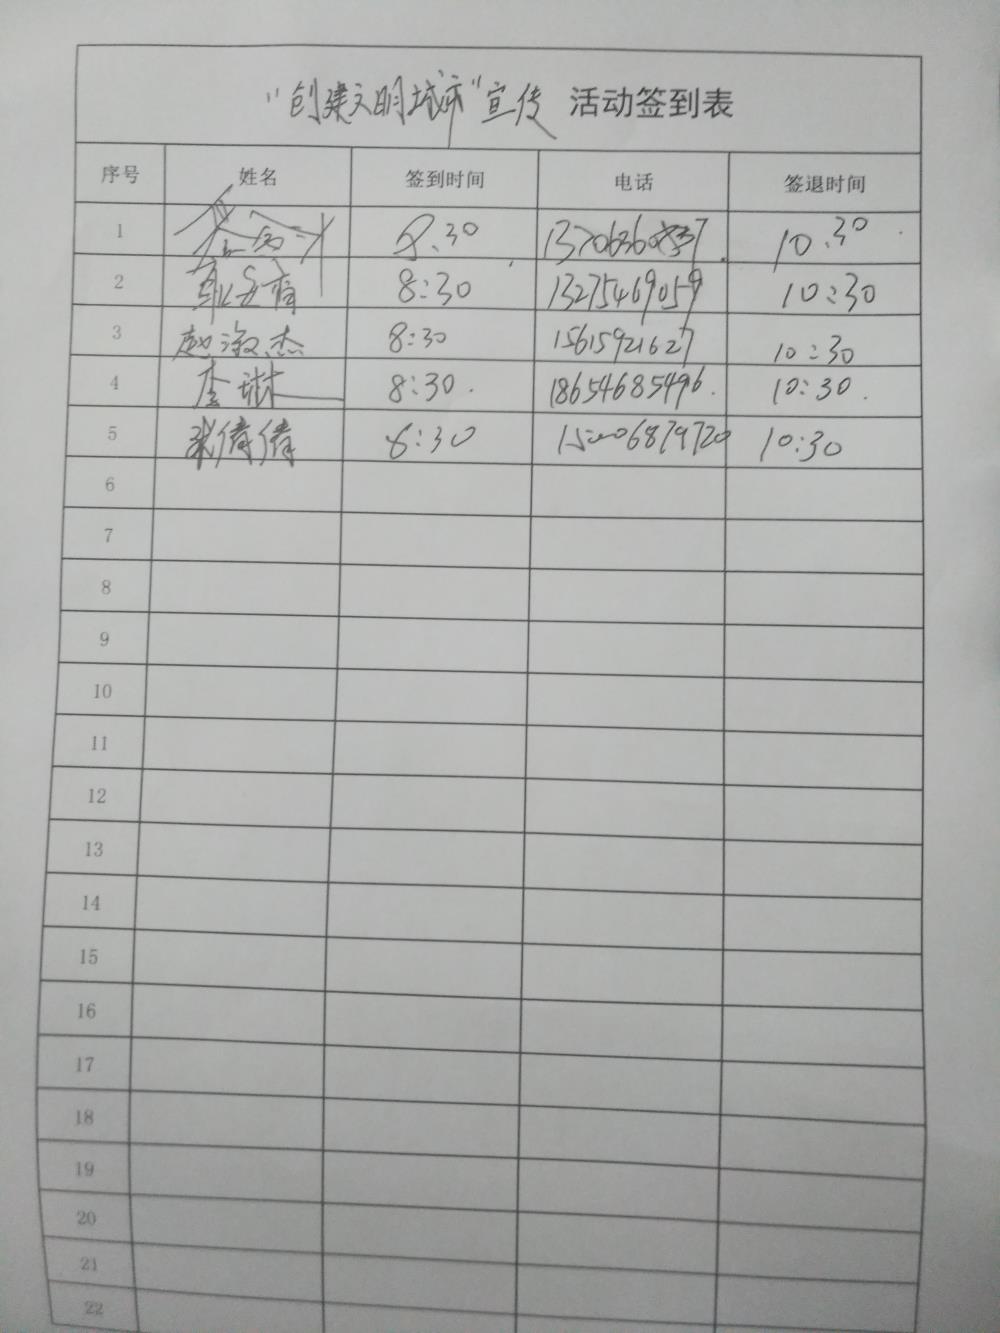 “创建文明城市”宣传 活动签到表
序号 姓名 签到时间 电话 签退时间
1 8.30 10.30
2 8:30 13275469059 10:30
3 赵淑杰 8:30 15615921627 10:30
4 李琳 8:30. 18654685496. 10:30.
5 张倩倩 8:30 15006879720 10:30
6
7
8
9
10
11
12
13
14
15
16
17
18
19
20
21
22